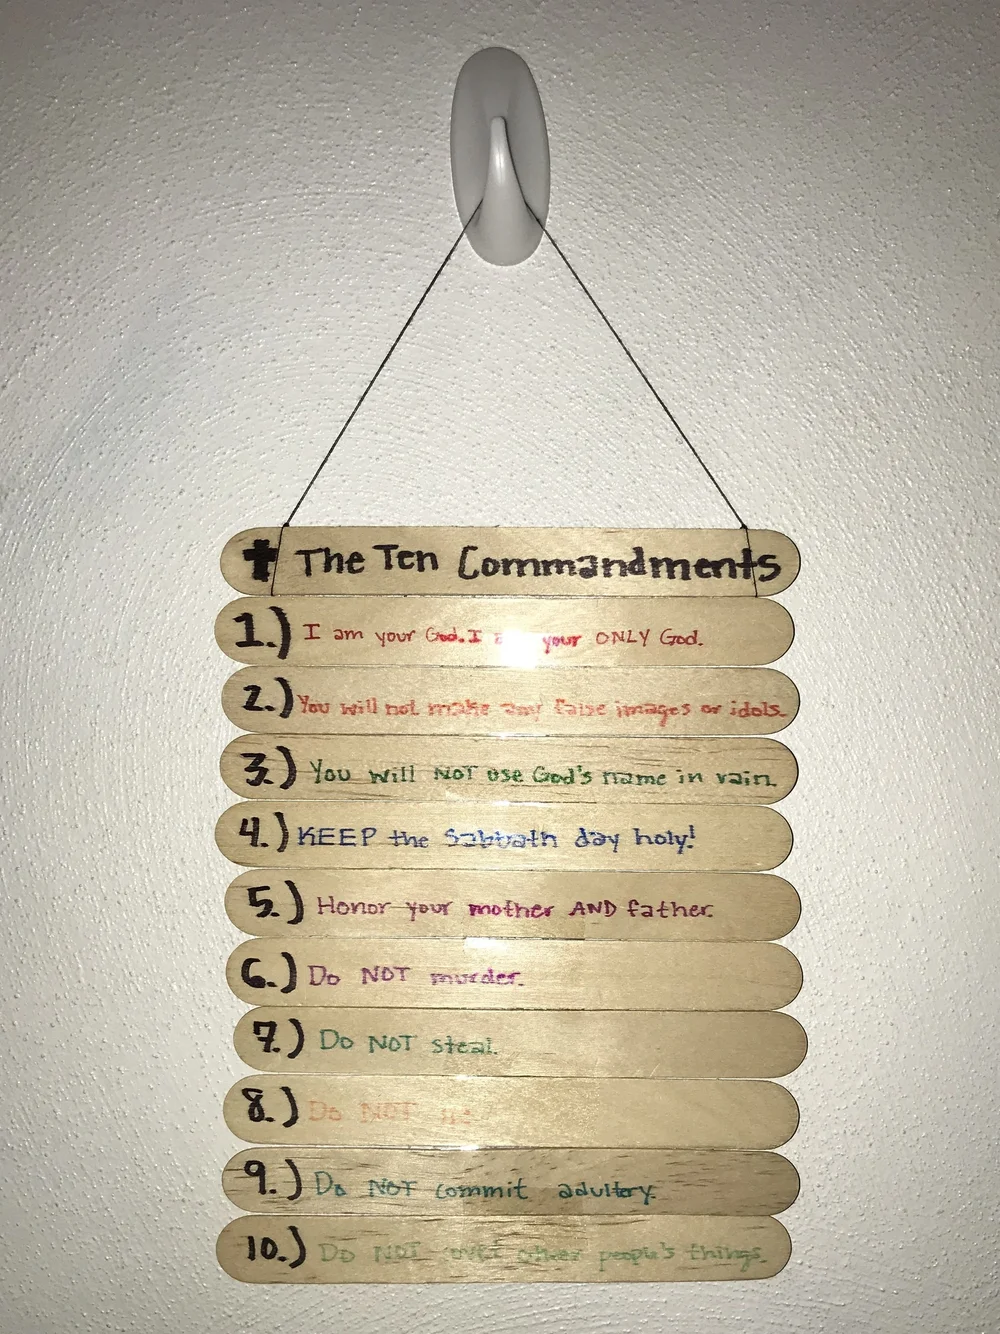 ✝ The Ten Commandments
1.) I am your God. I am your ONLY God.
2.) You will not make any false images or idols.
3.) You will NOT use God's name in vain.
4.) KEEP the Sabbath day holy!
5.) Honor your mother AND father.
6.) Do NOT murder.
7.) Do NOT steal.
8.) Do NOT lie.
9.) Do NOT commit adultery.
10.) Do NOT covet other people's things.